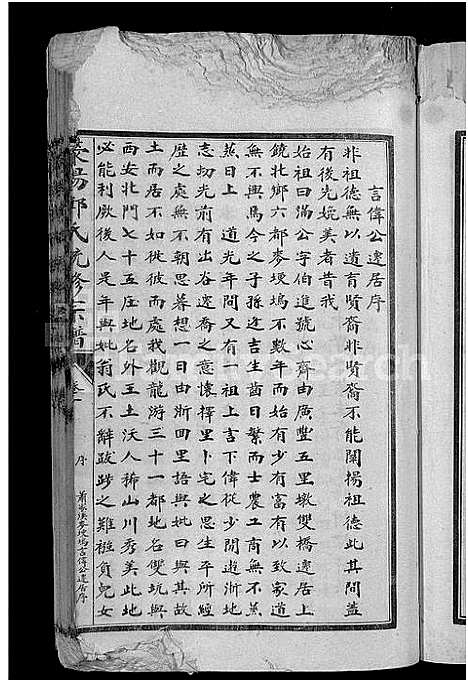 言偉公遷居序
非祖德無以遺育賢裔非賢裔不能闡揚祖德此其間蓋
有後先媲美者昔我
始祖曰滿公字伯進號心齊由廣豐五里墩雙橋遷居上
饒北鄉六都麥埂塢不數年而始有少有富有以致家道
無不興焉今之子孫迄吉生齒日繁而士農工商無不蒸
蒸日上 道光年間又有 祖上言下偉從少閒遊浙地
志切光前有出谷遷喬之意懷擇里卜宅之思生平所經
歷之處無不朝思暮想一日由浙回里語與妣曰與其故
土而居不如從彼而處我觀龍游三十一都地名雙坑與
西安北門七十五庄地名外王土沃人稀山川秀美此地
必能利厥後人是年與妣翁氏不辭跋踄之難襁負兒女
滎陽鄭氏統修宗譜
卷一
序